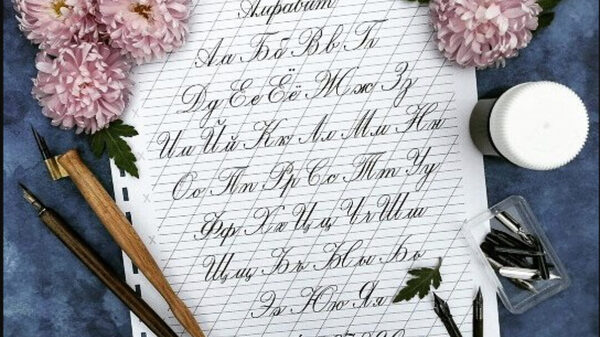 Алфавит
Аа Бб Вв Гг
Дд Ее Ёё Жж Зз
Ии Йй Кк Лл Мм Нн
Оо Пп Рр Сс Тт Уу
Фф Хх Цц Чч Шш
Щщ Ъъ Ыы Ьь
Ээ Юю Яя